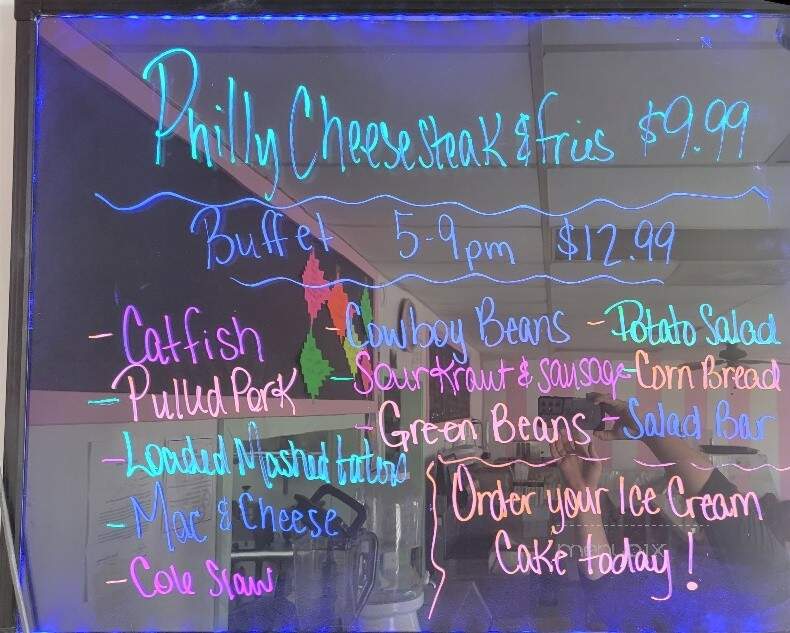 Philly Cheesesteak & fries $9.99
Buffet 5-9pm $12.99
- Catfish
- Pulled Pork
- Loaded Mashed taters
- Mac & Cheese
- Cole Slaw
- Cowboy Beans
- Sourkraut & sausage
- Green Beans
- Potato Salad
- Corn Bread
- Salad Bar
Order your Ice Cream
Cake today!
menupix